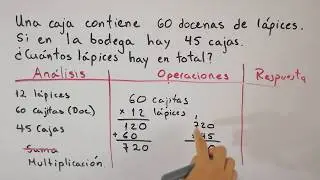 Una caja contiene 60 docenas de lápices.
Si en la bodega hay 45 cajas.
¿Cuántos lápices hay en total?
Análisis Operaciones Respuesta
12 lápices
60 cajitas (Doc)
45 Cajas
Suma
Multiplicación
60 cajitas
x 12 lápices
120
+ 60
720
1
720
45